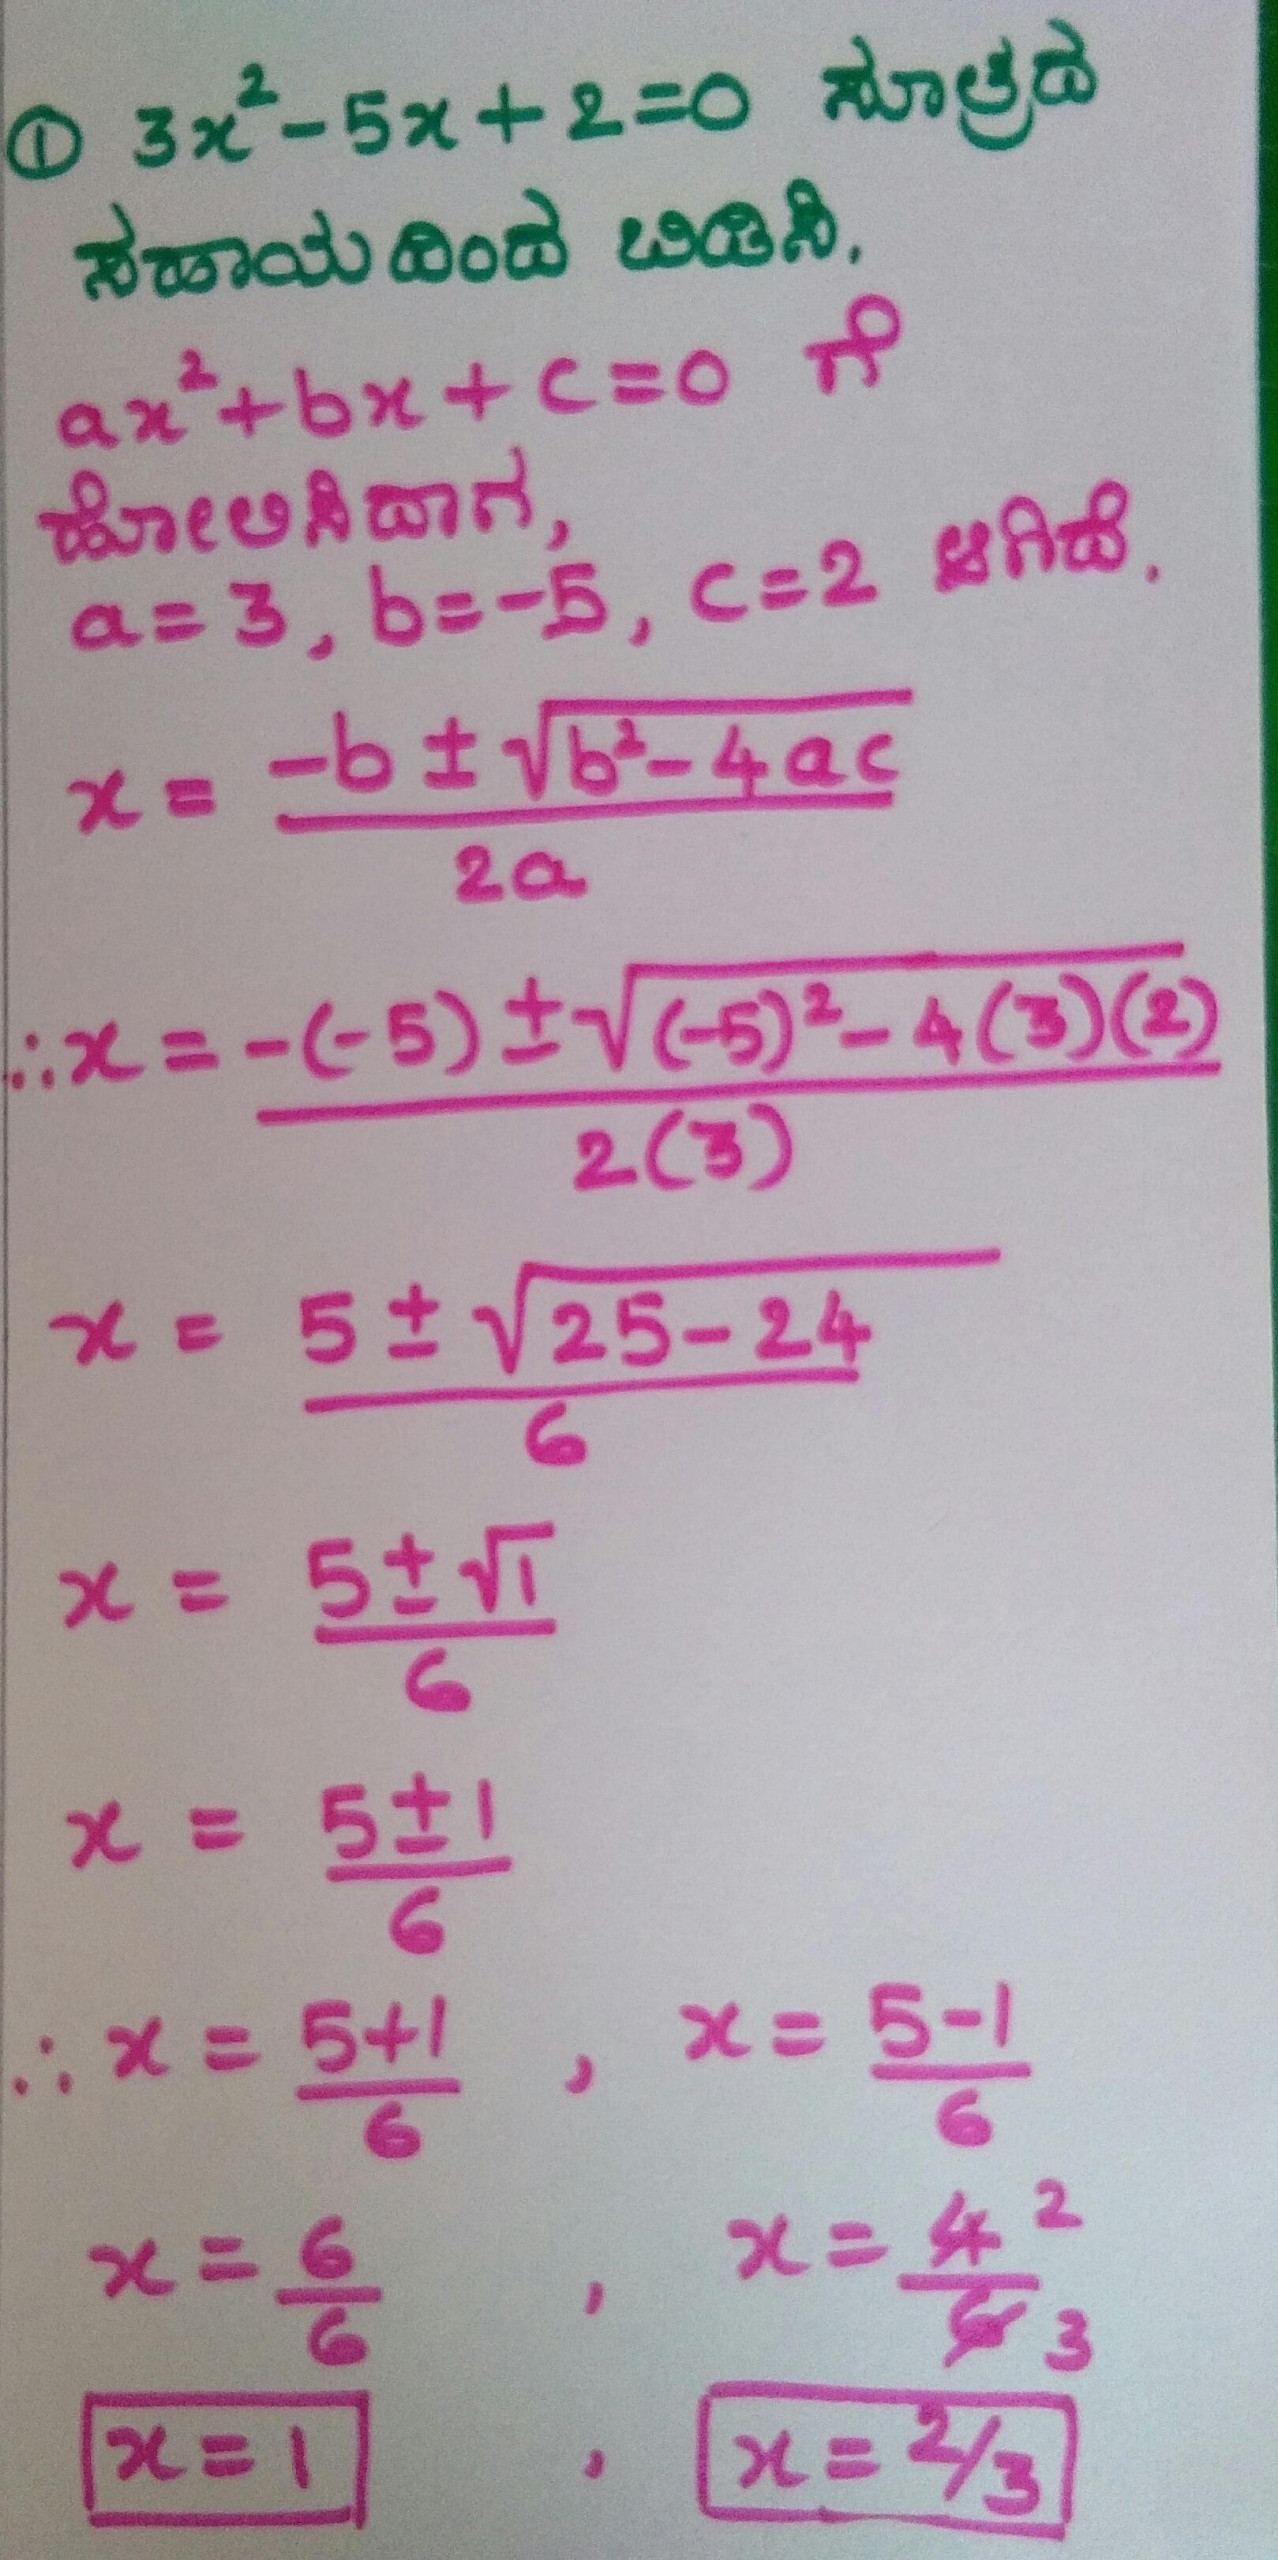 ① 3x²-5x+2=0 ಸೂತ್ರದ
ಸಹಾಯದಿಂದ ಬಿಡಿಸಿ.
ax²+bx+c=0 ಗೆ
ಹೋಲಿಸಿದಾಗ,
a=3, b=-5, c=2 ಆಗಿದೆ.
x = -b ± √b²-4ac
2a
∴x = -(-5) ± √(-5)²-4(3)(2)
2(3)
x = 5 ± √25-24
6
x = 5 ± √1
6
x = 5±1
6
∴ x = 5+1 , x = 5-1
6 6
x = 6/6 , x = 4 2
6 3
x = 1 , x = 2/3